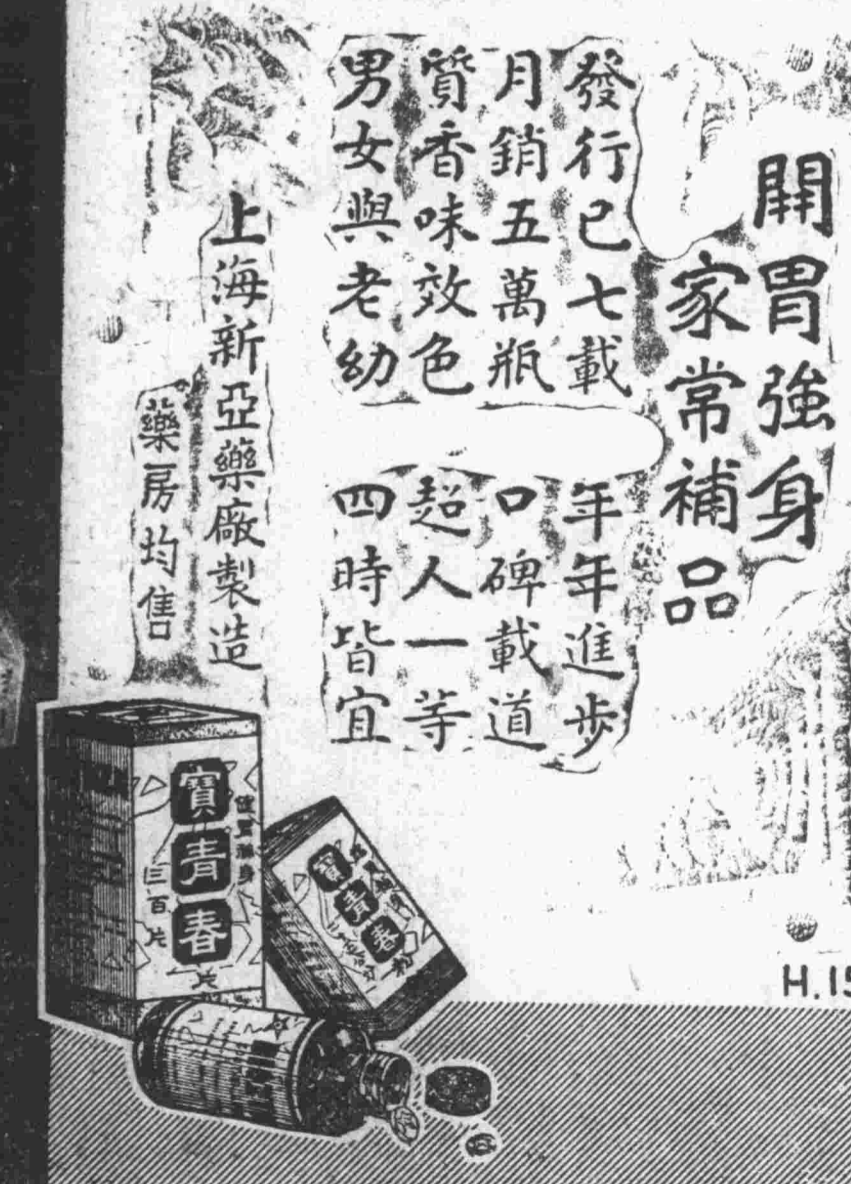 開胃強身
家常補品
發行已七載 年年進步
月銷五萬瓶 口碑載道
質香味效色 超人一等
男女與老幼 四時皆宜
上海新亞藥廠製造
藥房均售
寶青春
片
三百片
寶青春
H.15